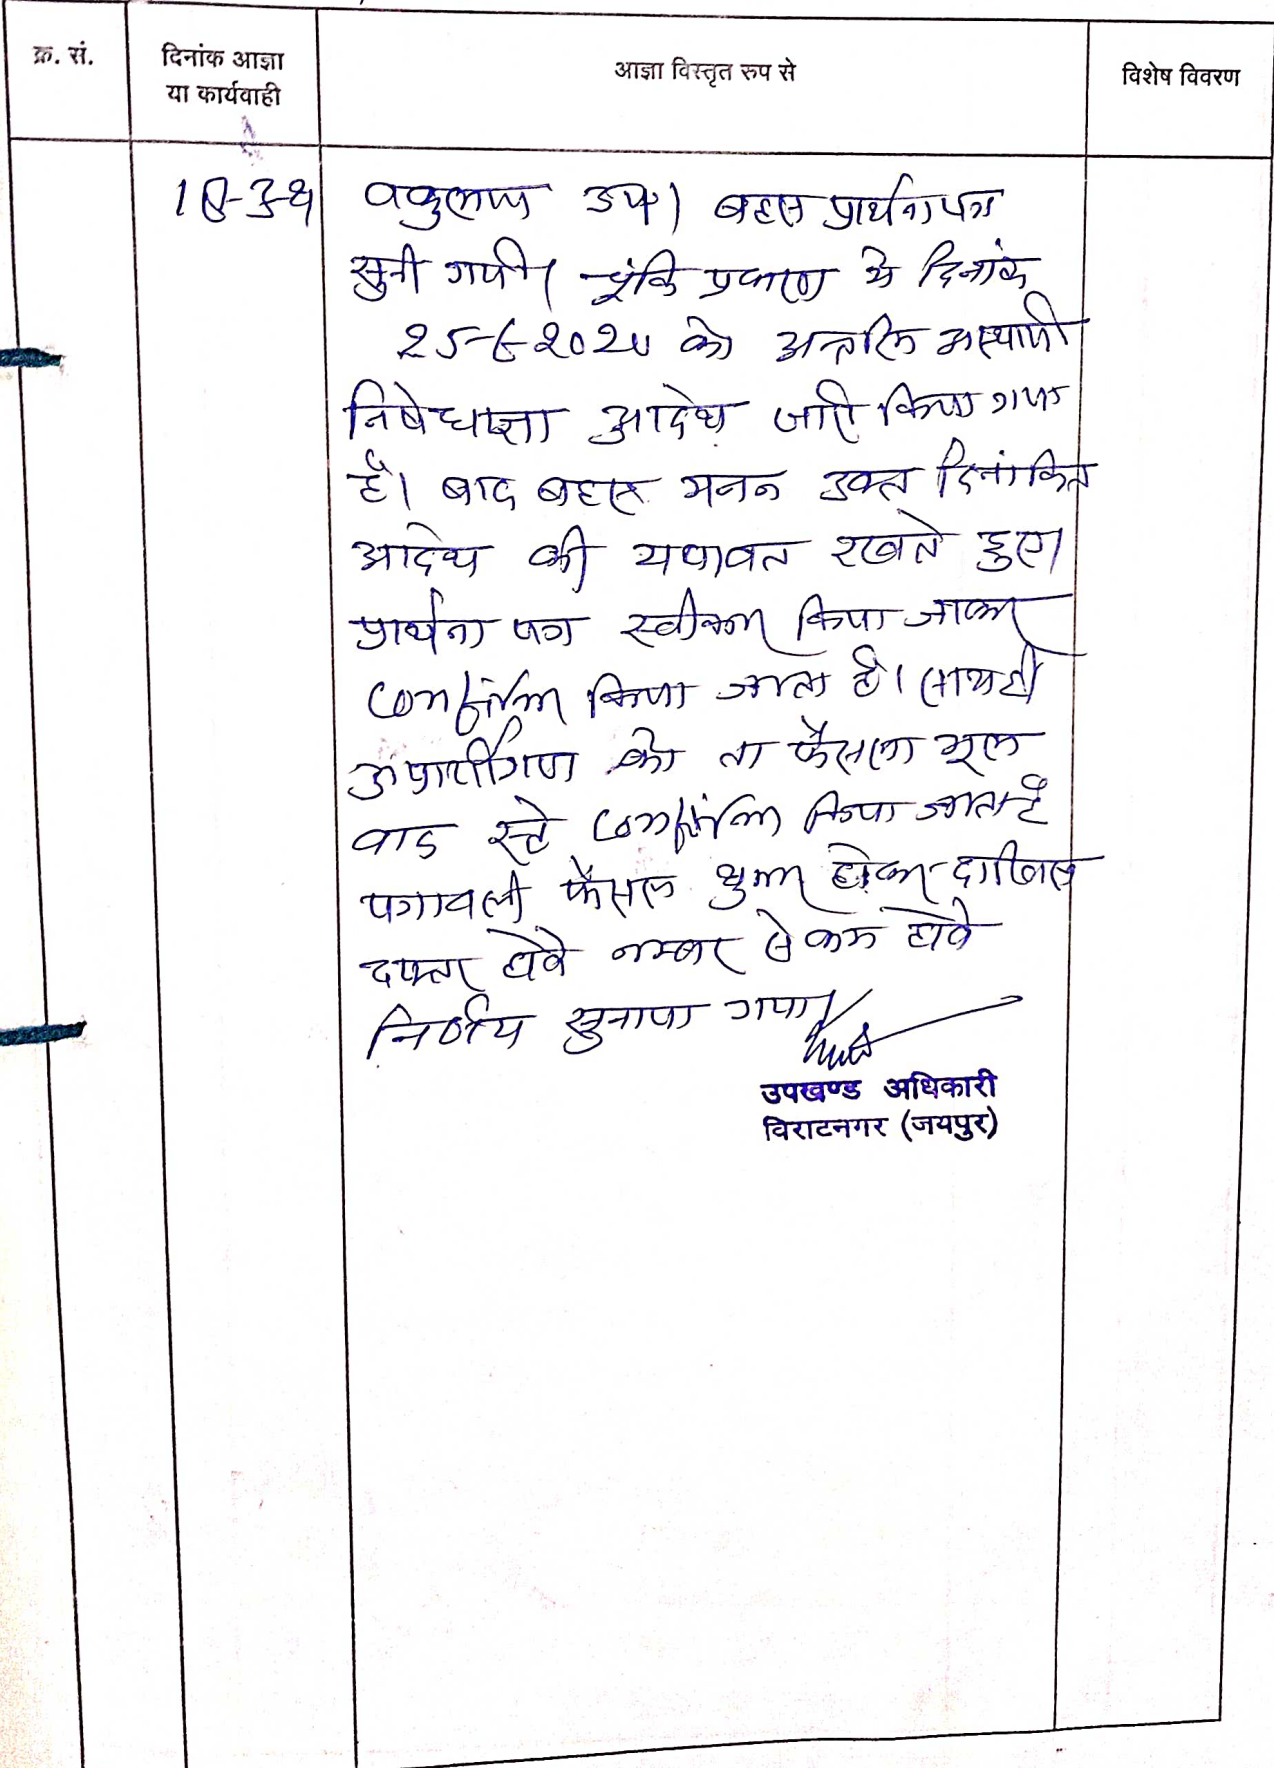 क्र. सं.
दिनांक आज्ञा
या कार्यवाही
आज्ञा विस्तृत रुप से
विशेष विवरण
वकुलाण उप। बहस प्रार्थना पत्र
सुनी गयी। चूंकि प्रकरण मे दिनांक
को अन्तरिम अस्थायी
निषेधाज्ञा आदेश जारी किया गया
है। बाद बहस मनन उक्त दिनांकित
आदेश की यथावत रखते हुए
प्रार्थना पत्र स्वीकार किया जाकर
confirm किया जाता है। साथ ही
अप्रार्थीगण को ता फैसला मूल
वाद स्टे confirm किया जाता है
पत्रावली फैसल शुमार होकर दाखिल
दफ्तर होवे नम्बर से कम होवे
निर्णय सुनाया गया।
उपखण्ड अधिकारी
विराटनगर (जयपुर)